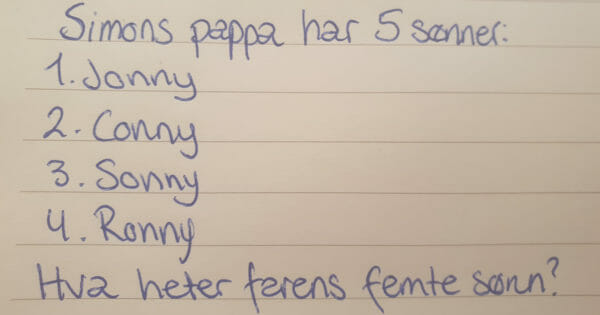 Simons pappa har 5 sønner:
1. Jonny
2. Conny
3. Sonny
4. Ronny
Hva heter farens femte sønn?